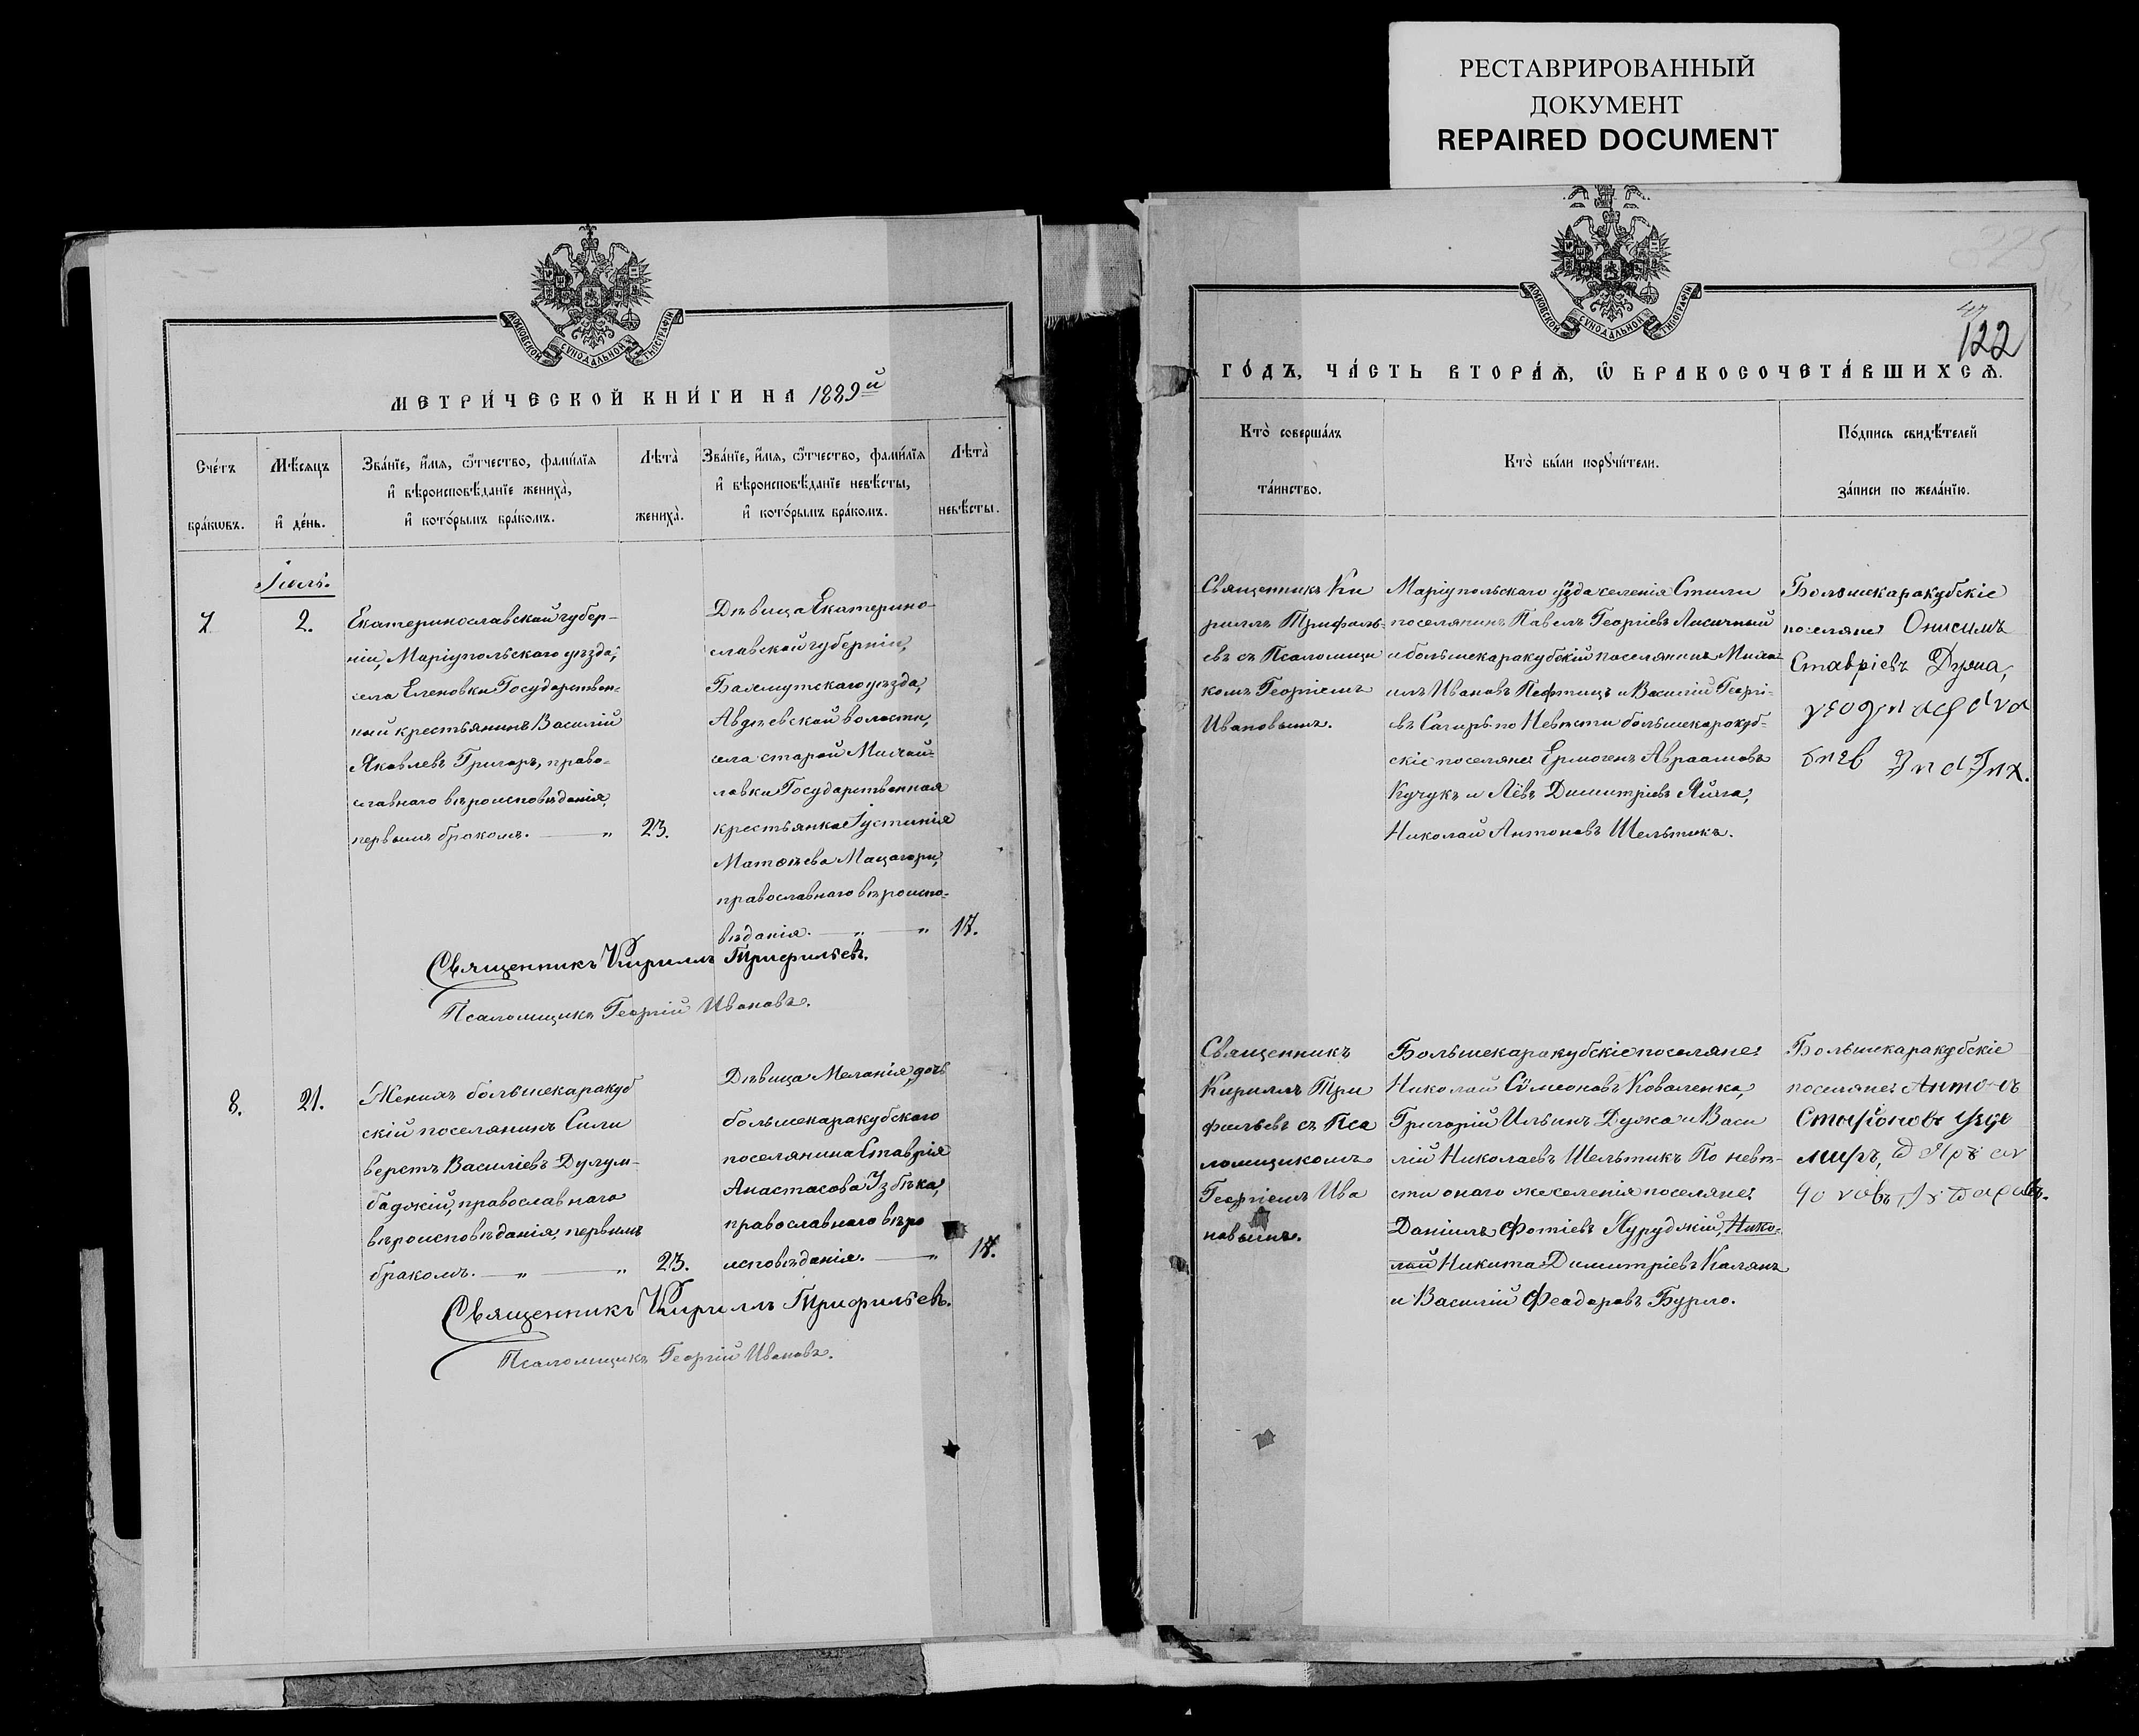 РЕСТАВРИРОВАННЫЙ
ДОКУМЕНТ
REPAIRED DOCUMENT
МОСКОВСКОЙ СѴНОДАЛЬНОЙ ТИПОГРАФІИ
МЕТРИ́ЧЕСКОЙ КНИ́ГИ НА 1889й
Сче́тъ
бра́кѡвъ.
Мѣ́сяцъ
и҆ де́нь.
Зва́нїе, и҆́мя, ѻ҆́тчество, фами́лїя
и҆ вѣроисповѣ́данїе жениха̀,
и҆ кото́рымъ бра́комъ.
Лѣта̀
жениха̀.
Зва́нїе, и҆́мя, ѻ҆́тчество, фами́лїя
и҆ вѣроисповѣ́данїе невѣ́сты,
и҆ кото́рымъ бра́комъ.
Лѣта̀
невѣ́сты.
Іюль.
7
2.
Екатеринославской губер-
ніи, Маріупольскаго уѣзда,
села Еленовки Государствен-
ный крестьянинъ Василій
Яковлевъ Григоръ, право-
славнаго вѣроисповѣданія,
первымъ бракомъ. — „
23.
Дѣвица Екатерино-
славской губерніи,
Бахмутскаго уѣзда,
Авдѣевской волости,
села старой Михай-
ловки Государственная
крестьянка Іустинія
Матѳѣева Мацагори,
православнаго вѣроиспо-
вѣданія. — „ — „
17.
Священникъ Кириллъ Трифильевъ.
Псаломщикъ Георгій Ивановъ.
8.
21.
Женихъ большекаракуб
скій поселянинъ Сили
верстъ Василіевъ Дулум-
баджій, православнаго
вѣроисповѣданія, первымъ
бракомъ. — „ — „
23.
Дѣвица Меланія, дочь
большекаракубскаго
поселянина Ставрія
Анастасова Узбѣка,
православнаго вѣро
исповѣданія. — „
17.
Священникъ Кириллъ Трифильевъ.
Псаломщикъ Георгій Ивановъ.
МОСКОВСКОЙ СѴНОДАЛЬНОЙ ТИПОГРАФІИ
325
122
ГО́ДЪ, ЧА́СТЬ ВТОРА́Ѧ, Ѡ҆ БРАКОСОЧЕТА́ВШИХСѦ.
Кто̀ соверша́лъ
та́инство.
Кто̀ бы́ли порꙋчи́тели.
По́дпись свидѣ́телей
за́писи по жела́нїю.
Священникъ Ки
риллъ Трифиль-
евъ съ Псаломщи
комъ Георгіемъ
Ивановымъ.
Маріупольскаго уѣзда селенія Стили
поселянинъ Павелъ Георгіевъ Лисичный
и большекаракубскій поселянинъ Миха
илъ Ивановъ Пефтицъ и Василій Георгі-
евъ Сагиръ по Невѣсти большекаракуб-
скіе поселяне: Ермогенъ Авраамовъ
Кучукъ и Лёвъ Димитріевъ Яйла,
Николай Антоновъ Шельтикъ.
Большекаракубскіе
поселяне: Онисимъ
Ставріевъ Дума,
Священникъ
Кириллъ Три
фильевъ съ Пса
ломщикомъ
Георгіемъ Ива
новымъ.
Большекаракубскіе поселяне:
Николай Сѵмеоновъ Коваленко,
Григорій Ильинъ Дужа и Васи
лій Николаевъ Шельтикъ По невѣ-
сти онаго же селенія поселяне:
Даніилъ Фотіевъ Пуруджій, Нико-
лай Никита Димитріевъ Калянъ
и Василій Феодоровъ Бурло.
Большекаракубскіе
поселяне: Антонъ